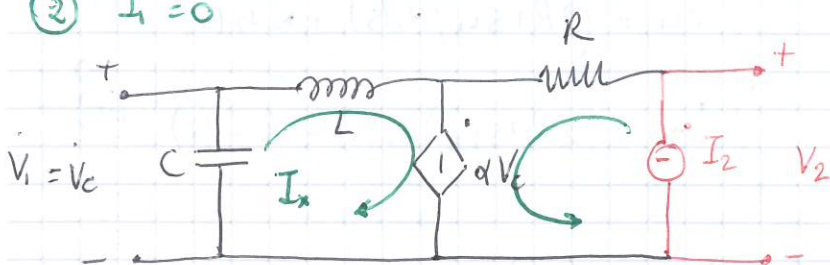 ② I₁ = 0
R
+
+
L
V̇₁ = V̇c
C
Iₓ
αVc
İ₂
V₂
-
-